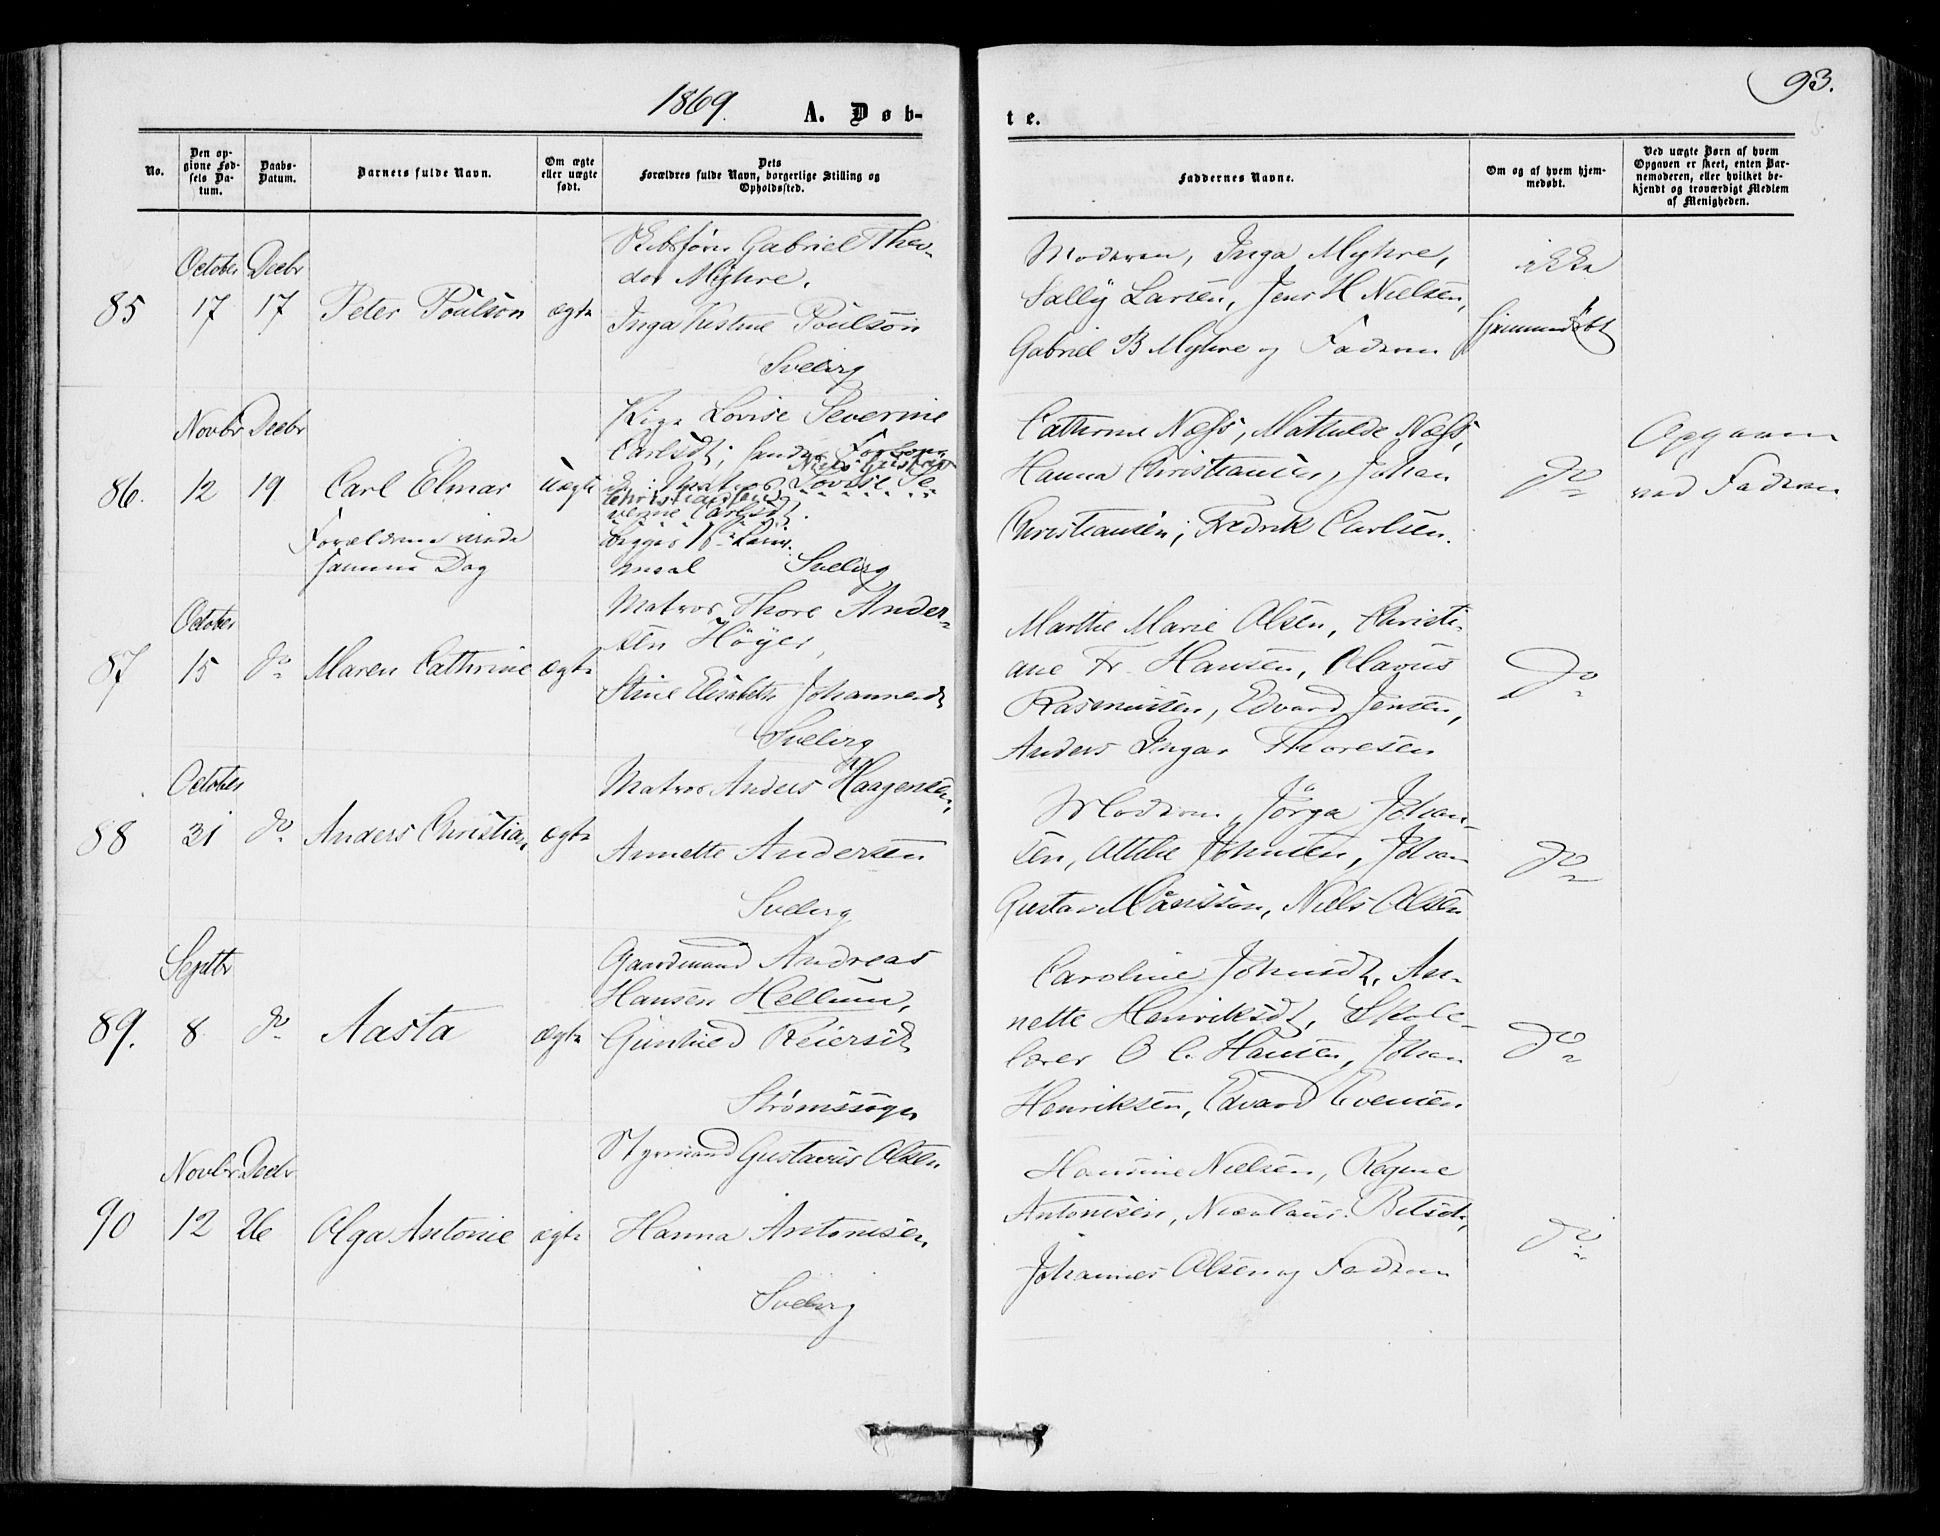 1869.
A. Døb-
te.
93.
No.
Den op-
givne Fød-
sels Da-
tum.
Daabs-
Datum.
Barnets fulde Navn.
Om ægte
eller uægte
født.
Dets
Forældres fulde Navn, borgerlige Stilling og
Opholdssted.
Faddernes Navne.
Om og af hvem hjem-
medøbt.
Ved uægte Børn af hvem
Opgaven er skeet, enten Bar-
nemoderen, eller hvilket be-
kjendt og troværdigt Medlem
af Menigheden.
October Decbr
85 17 17 Peter Poulson ægte
Skibsfører Gabriel Theo-
dor Myhre,
Inga Kistine Poulson
Svelvig
Moderen, Inga Myhre,
Sally Larsen, Jens H Nielsen,
Gabriel B Myhre og Faderen
ikke
hjemmedøbt
Novbr Decbr
86. 12 19 Carl Elmar uægte
Forældrene viede
samme Dag
Pige Lovise Severine
Carlsdt,
Matros Lovise Se-
Niels Gustav
Christiansen
verine Carlsdt.
Svelvig
Cathrine Næss, Mathilde Næss,
Hanna Christiansen, Johan
Christiansen, Fredrik Carlsen.
do
Opgaven
ved Faderen
October
87 15 do Maren Cathrine ægte
Matros Thore Ander-
sen Höyer,
Stine Elisabeth Johannesdt
Svelvig
Marthe Marie Olsen, Christi-
ane Fr. Hansen, Olavus
Rasmussen, Edvard Jensen,
Anders Ingar Thoresen
do
October
88 31 do Anders Christian ægte
Matros Anders Haagensen,
Annette Andersen
Svelvig
Moderen, Jörga Johan-
sen, Attilie Johnsen, Johan
Gustav Månsson, Niels Olsen
do
Septbr
89. 8 do Aasta ægte
Gaardmand Andreas
Hansen Hellum,
Gunhild Reiersdt
Strømssogn
Caroline Johnsdt, An-
nette Henriksdt, Skole-
lærer O C. Hansen, Johan
Henriksen, Edvard Evensen
do
Novbr Decbr
90 12 26 Olga Antonie ægte
Styrmand Gustavus Olsen
Hanna Antonisen,
Svelvig
Hansine Nielsen, Regine
Antonisen,
Johannes Olsen og Faderen
do